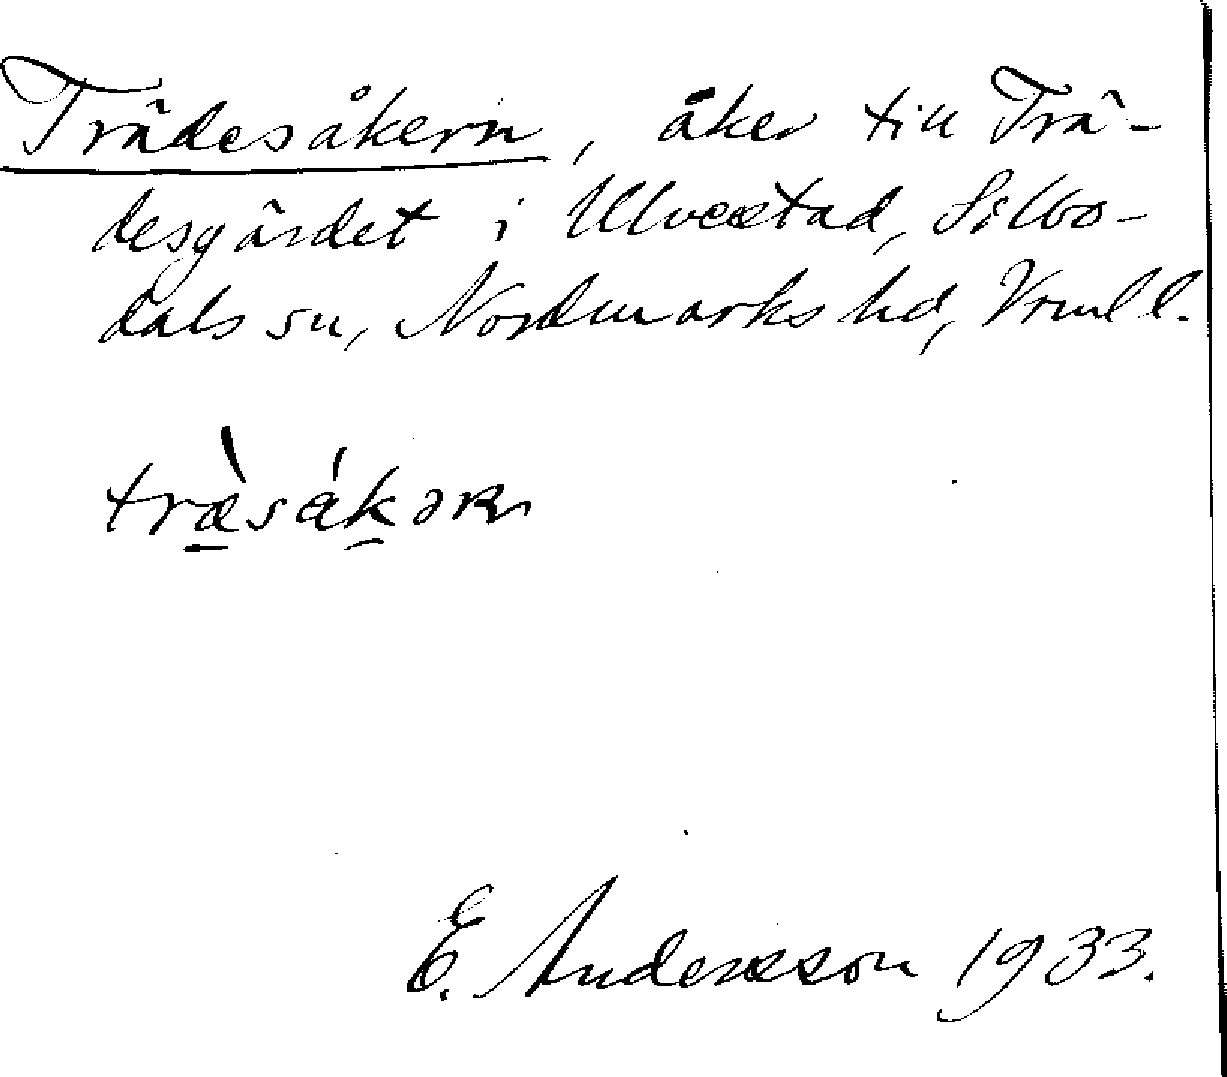 Trädesåkern, åker till Trä-
desgärdet i Ulvestad, Silbo-
dals sn, Nordmarks hd, Vrml l.
træ̀sákəʀn
E. Andersson 1933.